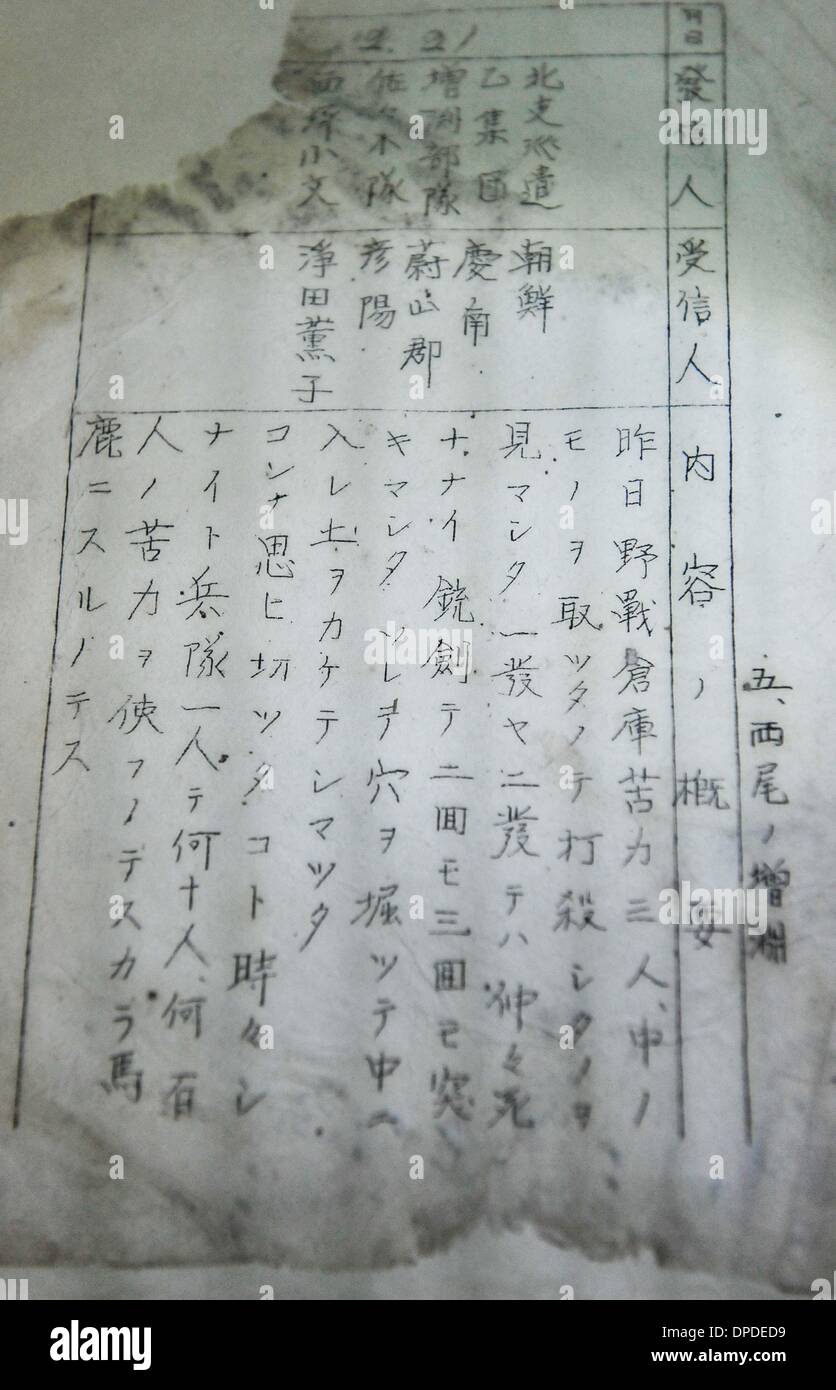 五、西尾ノ增淵
月日
發信人
受信人
內容ノ概要
2.21
北支派遣
乙集团
增渕部隊
佐々木隊
小文
朝鮮
慶南
蔚山郡
彦陽
淨田薰子
昨日野戰倉庫苦力三人、中ノ
モノヲ取ツタノテ打殺シタノヲ
見マシタ一發ヤ二發テハ仲々死
ナナイ銃劍テ二囬モ三囬モ突
キマシタソレヲ穴ヲ堀ツテ中ヘ
入レ土ヲカケテシマツタ
コンナ思ヒ切ツタコト時々シ
ナイト兵隊一人テ何十人、何百
人ノ苦力ヲ使フノテスカラ馬
鹿ニスルノテス
alamy
Image ID: DPDED9
www.alamy.com